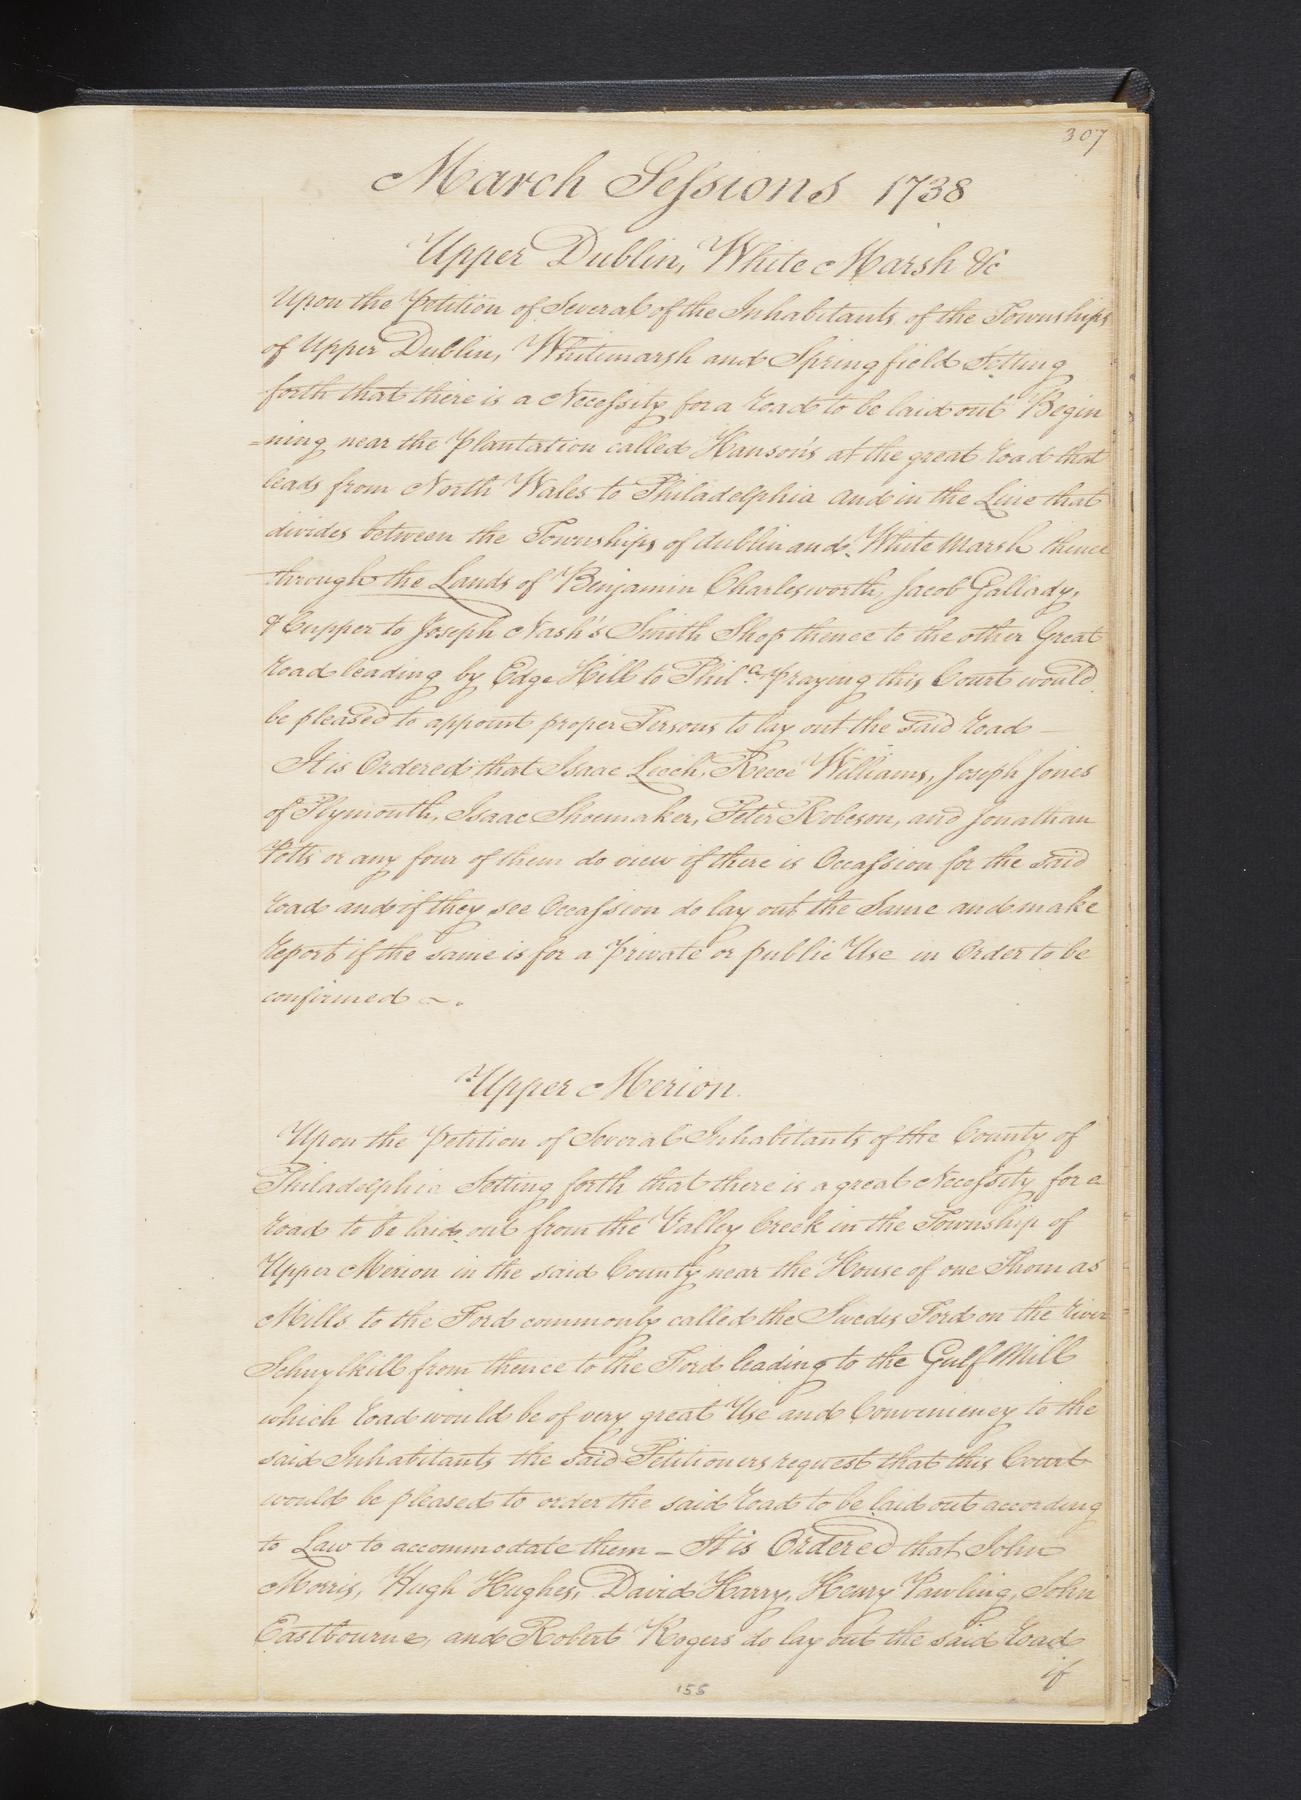 307
March Sessions 1738
Upper Dublin, White Marsh &c
Upon the Petition of Several of the Inhabitants of the Townships
of Upper Dublin, Whitemarsh and Springfield Setting
forth that there is a Necessity for a road to be laid out Begin
=ning near the Plantation called Hanson's at the great road that
leads from North Wales to Philadelphia and in the Line that
divides between the Townships of dublin and White Marsh thence
through the Lands of Benjamin Charlesworth, Jacob Gallady,
& Cupper to Joseph Nash's Smith Shop thence to the other Great
road leading by Edge Hill to Phil.a praying this Court would
be pleased to appoint proper Persons to lay out the said road —
It is Ordered that Isaac Leech, Reece Williams, Joseph Jones
of Plymouth, Isaac Shoemaker, Peter Robeson, and Jonathan
Potts or any four of them do view if there is Occassion for the said
road and if they see Occassion do lay out the Same and make
report if the same is for a private or public Use in Order to be
confirmed ~.
Upper Merion.
Upon the Petition of Several Inhabitants of the County of
Philadelphia Setting forth that there is a great Necessity for a
road to be laid out from the Valley Creek in the Township of
Upper Merion in the said County near the House of one Thomas
Mills to the Ford commonly called the Swedes Ford on the river
Schuylkill from thence to the Ford leading to the Gulf Mill
which road would be of very great Use and Conveniency to the
said Inhabitants the said Petitioners request that this Court
would be pleased to order the said road to be laid out according
to Law to accommodate them — It is Ordered that John
Morris, Hugh Hughes, David Harry, Henry Pawling, John
Eastbourne, and Robert Rogers do lay out the said road
if
155